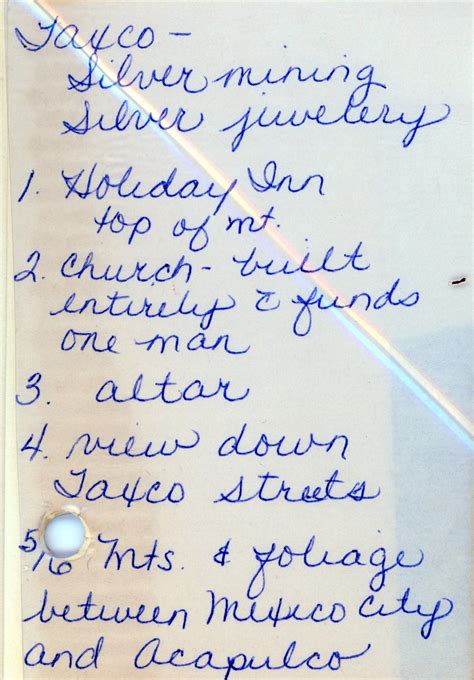 Taxco -
Silver mining
Silver juwelery
1. Holiday Inn
top of mt.
2. Church - built
entirely c̄ funds
one man
3. altar
4. view down
Taxco streets
5/6 Mts. & foliage
between Mexico City
and Acapulco